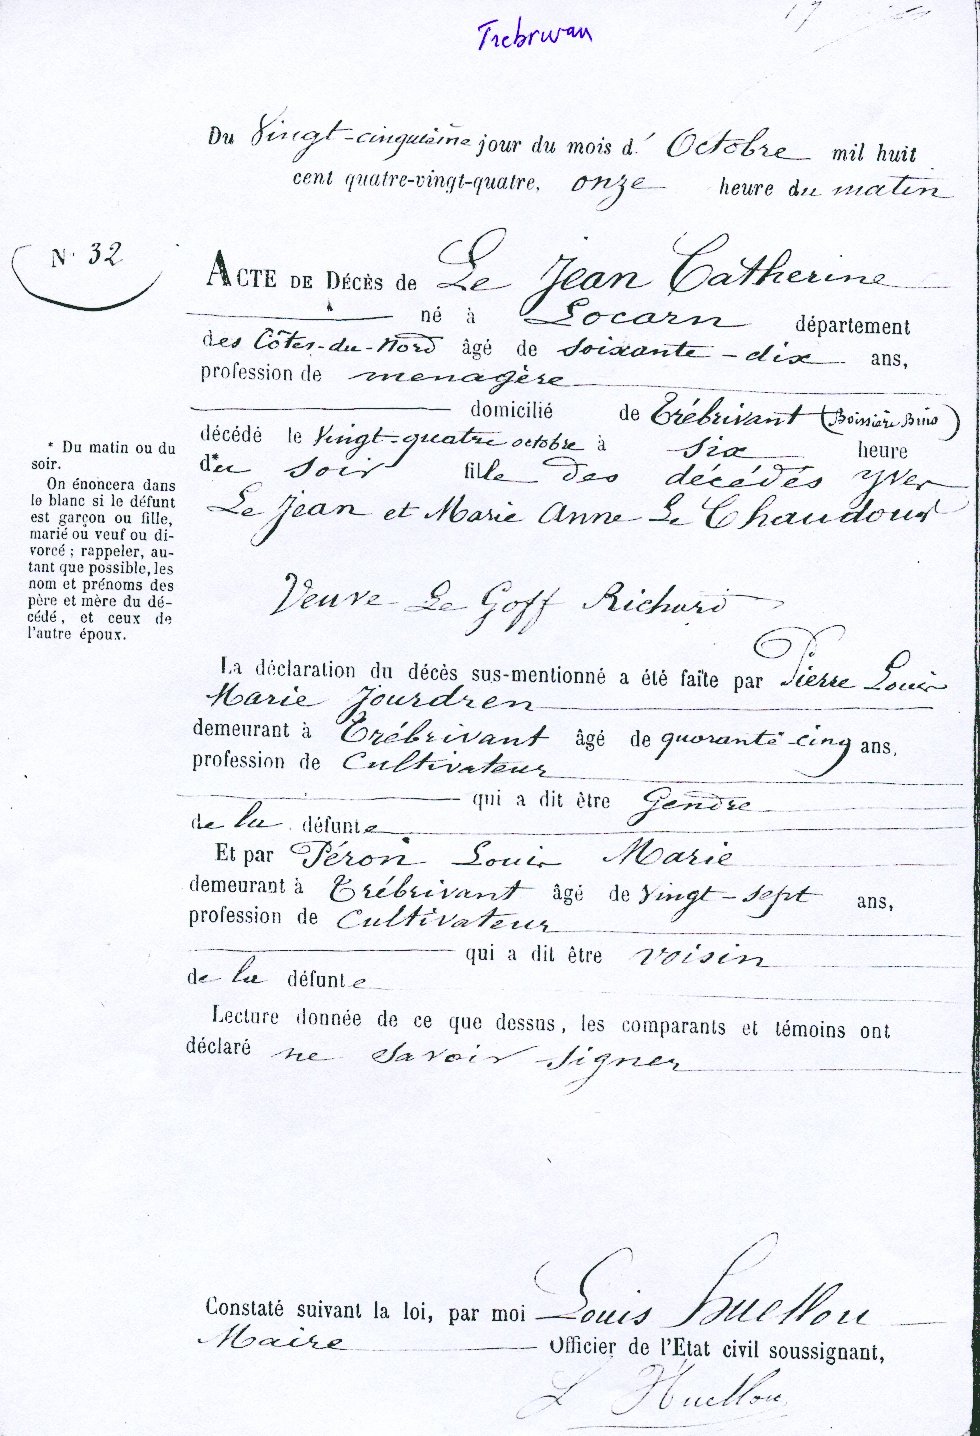 Trebrivan
Du Vingt-cinquième jour du mois d' Octobre mil huit
cent quatre-vingt-quatre, onze heure du matin
N° 32
ACTE DE DÉCÈS de Le Jean Catherine
né à Locarn département
des Côtes-du-Nord âgé de soixante-dix ans,
profession de menagère
domicilié de Trébrivant (Boissière
décédé le Vingt-quatre octobre à six heure
du* soir fille des décédés Yves
Le Jean et Marie Anne Le Chaudour
* Du matin ou du
soir.
On énoncera dans
le blanc si le défunt
est garçon ou fille,
marié où veuf ou di-
vorcé ; rappeler, au-
tant que possible, les
nom et prénoms des
père et mère du dé-
cédé, et ceux de
l'autre époux.
Veuve Le Goff Richard
La déclaration du décès sus-mentionné a été faite par Pierre Louis
Marie Jourdren
demeurant à Trébrivant âgé de quarante-cinq ans,
profession de Cultivateur
qui a dit être Gendre
de la défunte
Et par Péron Louis Marie
demeurant à Trébrivant âgé de Vingt-sept ans,
profession de Cultivateur
qui a dit être voisin
de la défunte
Lecture donnée de ce que dessus, les comparants et témoins ont
déclaré ne savoir signer
Constaté suivant la loi, par moi Louis Huellou
Maire Officier de l'Etat civil soussignant,
L Huellou